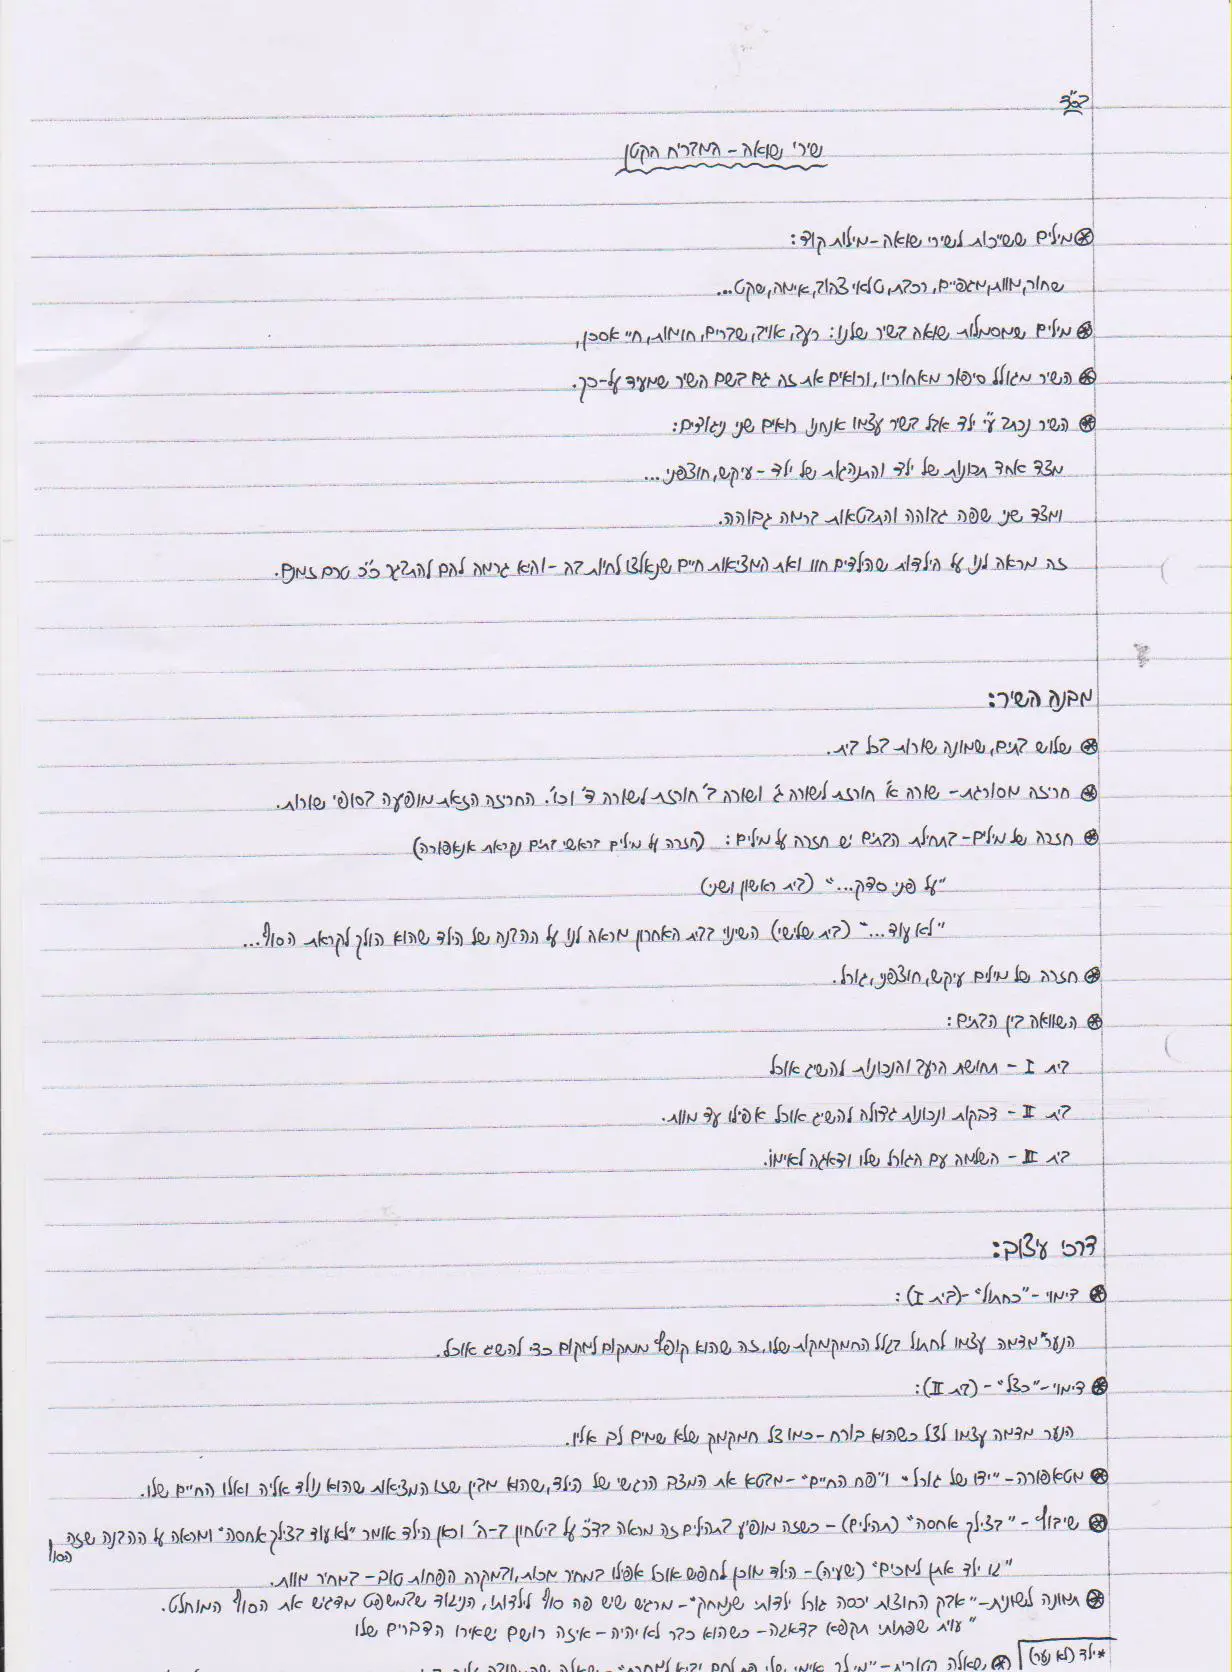 בס"ד
שירי שואה - המבריח הקטן
מילים ששייכות לשירי שואה - מילות קוד:
שחור, מוות, מגפיים, רכבת, טלאי צהוב, אימה, שקט...
מילים שמסמלות שואה בשיר שלנו: רעב, אויב, שברים, חומות, חיי אסכן,
השיר מגולל סיפור מאחוריו, ורואים את זה גם בשם השיר שמעיד על-כך.
השיר נכתב ע"י ילד אבל בשיר עצמו אנחנו רואים שני ניגודים:
מצד אחד תכונות של ילד והתנהגות של ילד - עיקש, חוצפני...
ומצד שני שפה גבוהה והתבטאות ברמה גבוהה.
זה מראה לנו על הילדות שהילדים חוו ואת המציאות חיים שנאלצו לחיות בה - והיא גרמה להם להתבגר כ"כ טרם זמנם.
מבנה השיר:
שלוש בתים, שמונה שורות בכל בית.
חריזה מסורגת - שורה א' חורזת לשורה ג' ושורה ב' חורזת לשורה ד' וכו'. החריזה הזאת מופיעה בסופי שורות.
חזרה של מילים - בתחילת הבתים יש חזרה על מילים: (חזרה על מילים בראשי בתים נקראת אנאפורה)
"על פני סדק..." (בית ראשון ושני)
"לא עוד..." (בית שלישי) השינוי בבית האחרון מראה לנו על ההבנה של הילד שהוא הולך לקראת הסוף...
חזרה של מילים עיקש, חוצפני, גורל.
השוואה בין הבתים:
בית I - תחושת הרעב והנכונות להשיג אוכל
בית II - דבקות ונכונות גדולה להשיג אוכל אפילו עד מוות.
בית III - השלמה עם הגורל שלו ודאגה לאימו.
דרכי עיצוב:
דימוי - "כחתול" - (בית I):
הנער* מדמה עצמו לחתול בגלל החמקמקות שלו, זה שהוא קופץ ממקום למקום כדי להשיג אוכל.
דימוי - "כצל" - (בת II):
הנער מדמה עצמו לצל כשהוא בורח - כמו צל חמקמק שלא שמים לב אליו.
מטאפורה - "ידו של גורל" ו"פח החיים" - מבטא את המצב הרגשי של הילד, שהוא מבין שזו המציאות שהוא נולד אליה ואלו החיים שלו.
שיבוץ - "בצילך אחסה" (תהילים) - כשזה מופיע בתהילים זה מראה בד"כ על ביטחון ב-ה' וכאן הילד אומר "לא עוד בצילך אחסה" ומראה על ההבנה שזה הסוף
"גו ילד אתן למכים" (ישעיה) - הילד מוכן לחפש אוכל אפילו במחיר מכות, ובמקרה הפחות טוב - במחיר מוות.
תמונה לשונית - "אבק החוצות יכסה גורל ילדותי שנמחק" - מרגש שיש פה סוף לילדותו, הניגוד שבמשפט מדגיש את הסוף המוחלט.
"עוית שפתותי תקפא בדאגה - כשהוא כבר לא יהיה - איזה רושם ישאירו הדברים שלו
*ילד (לא נער)
שאלה רטורית - "מי לך אימי שלי פת לחם יביא למחרת" -